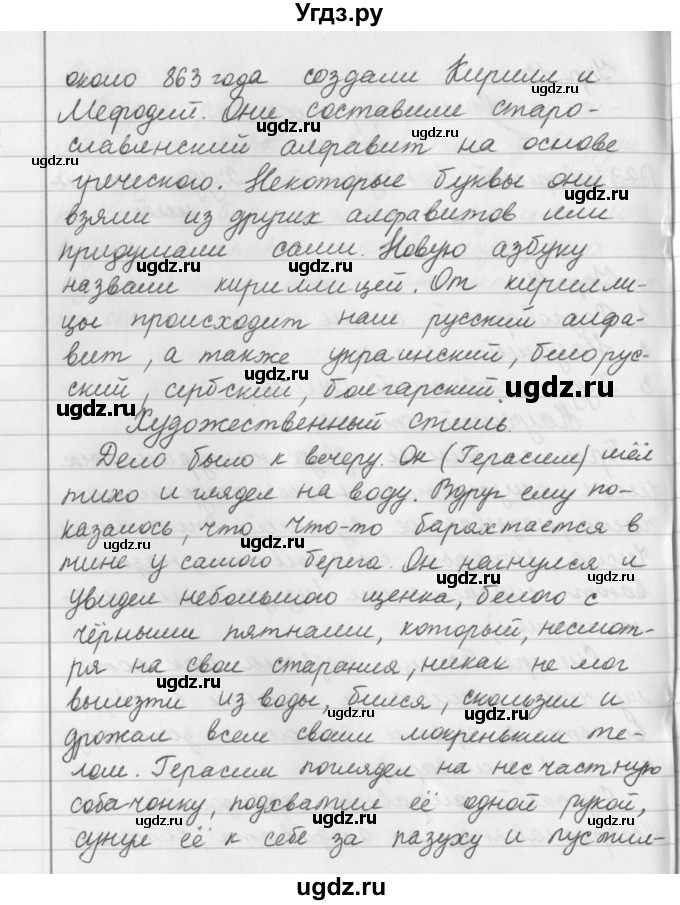 Угдз.ру
около 863 года создали Кирилл и
Мефодий. Они составили старо-
славянский алфавит на основе
греческого. Некоторые буквы они
взяли из других алфавитов или
придумали сами. Новую азбуку
назвали кириллицей. От кирилли-
цы происходит наш русский алфа-
вит, а также украинский, белорус-
ский, сербский, болгарский.
Художественный стиль.
Дело было к вечеру. Он (Герасим) шёл
тихо и глядел на воду. Вдруг ему по-
казалось, что что-то барахтается в
тине у самого берега. Он нагнулся и
увидел небольшого щенка, белого с
чёрными пятнами, который, несмот-
ря на свои старания, никак не мог
вылезти из воды, бился, скользил и
дрожал всем своим мокреньким те-
лом. Герасим поглядел на несчастную
собачонку, подхватил её одной рукой,
сунул её к себе за пазуху и пустил-
ugdz.ru